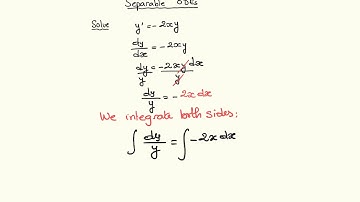 Separable ODEs
Solve y' = -2xy
dy/dx = -2xy
dy/y = -2xy dx/y
dy/y = -2x dx
We integrate both sides;
∫ dy/y = ∫ -2x dx